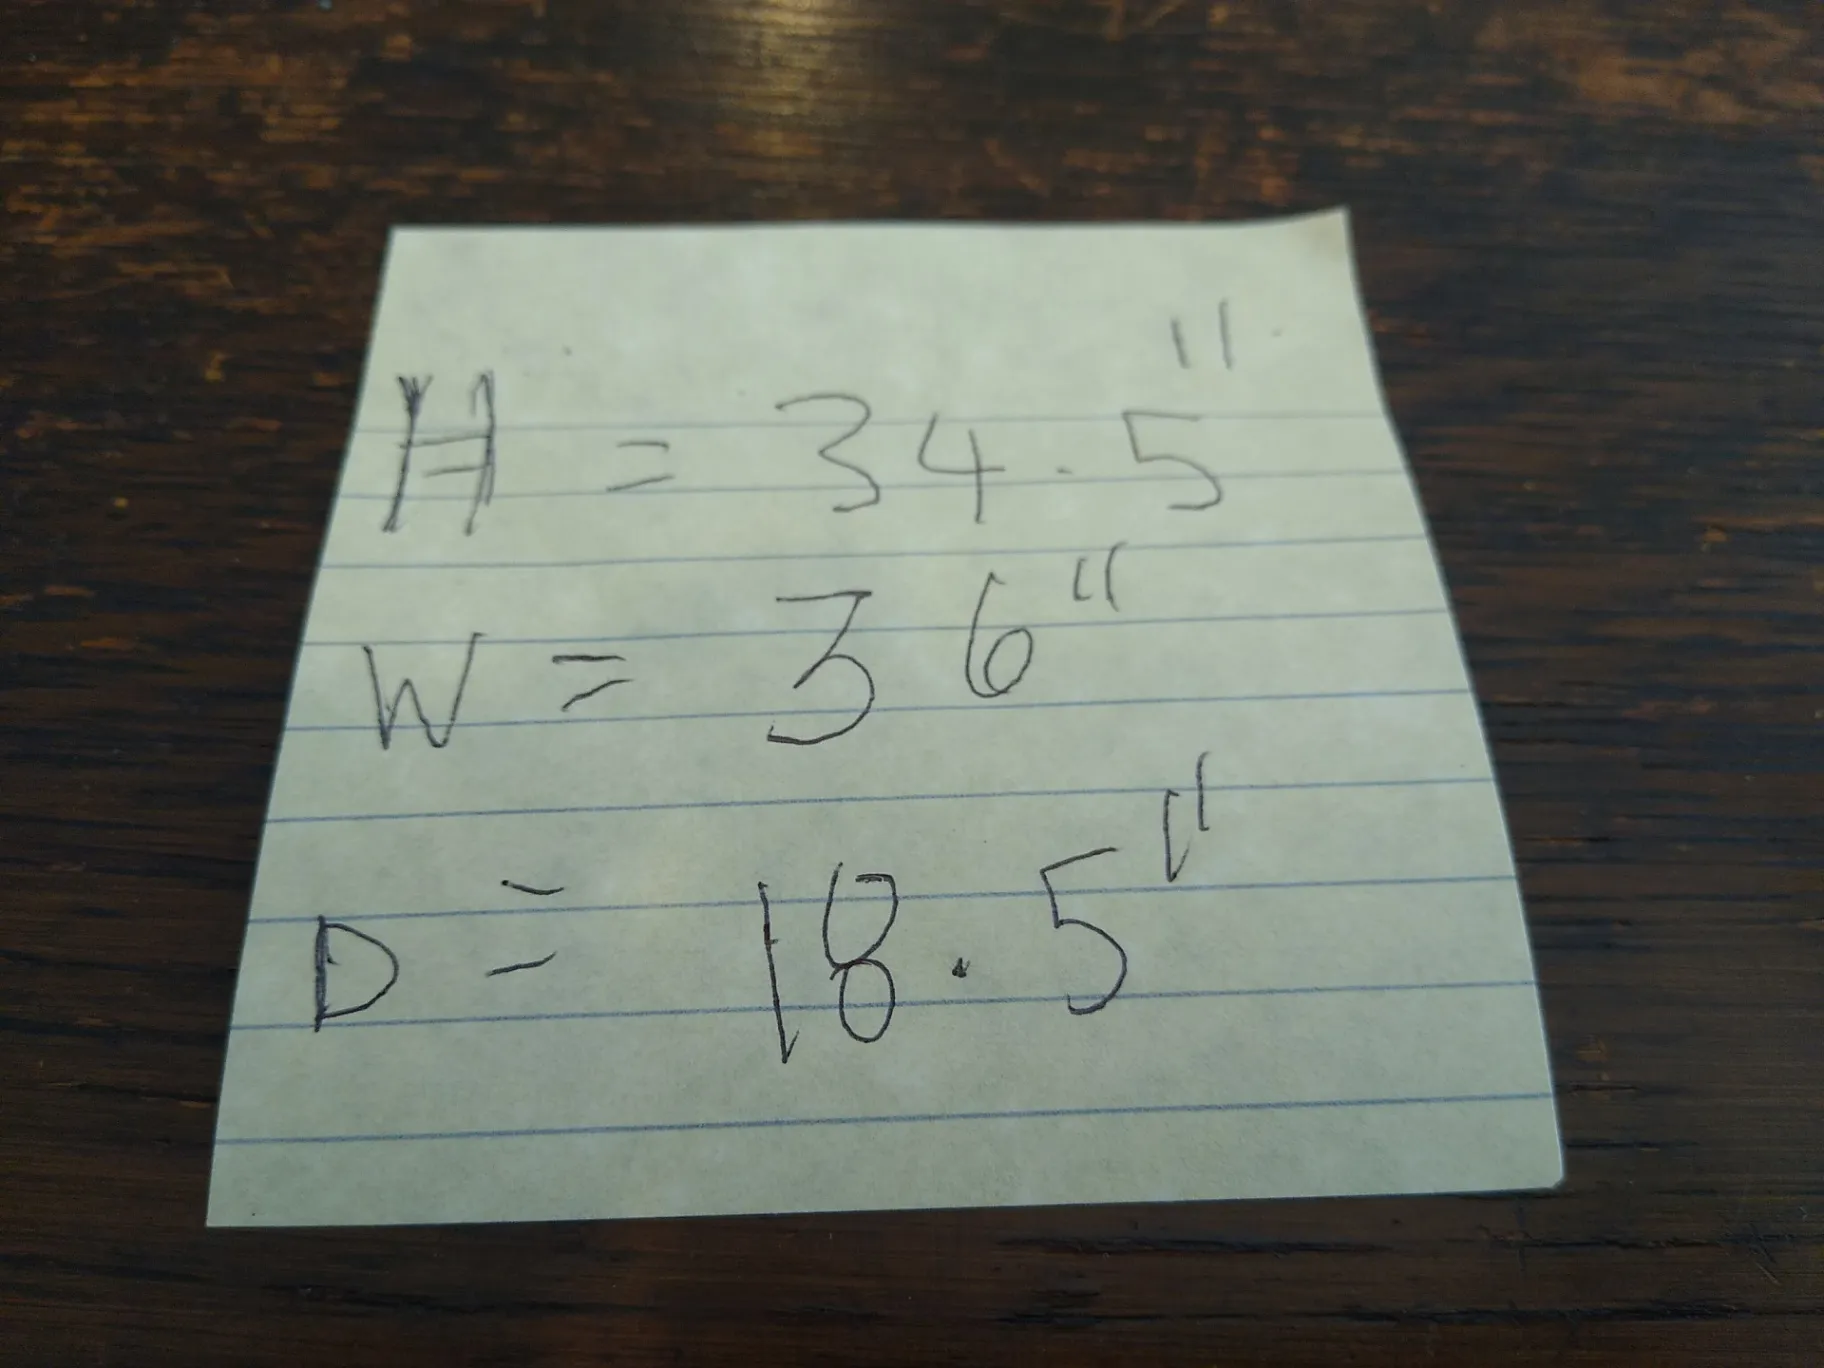 H = 34.5"
W = 36"
D = 18.5"